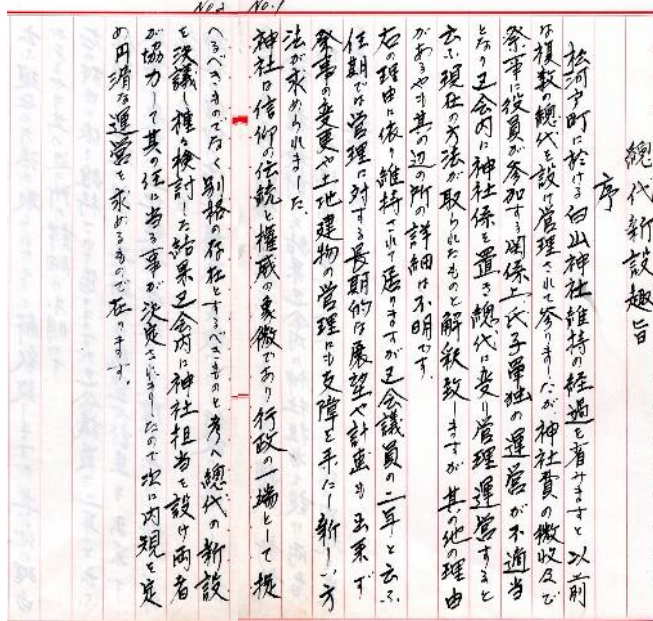 No.1
總代新設趣旨
序
松河戸町に於ける白山神社維持の経過を省みますと以前
は複数の總代を設け管理されて参りましたが、神社費の徴收及び
祭事に役員が参加する関係上氏子單独の運営が不適当
となり区会内に神社係を置き總代に変り管理運営すると
云ふ現在の方法が取られたものと解釈致しますが其の他の理由
があるやも其の辺の所の詳細は不明です。
右の理由に依り維持されて居りますが区会議員の二年と云ふ
任期では管理に対する長期的な展望や計画も出来ず
祭事の変更や土地建物の管理にも支障を来たし新しい方
法が求められました。
神社は信仰の伝統と権威の象徴であり行政の一端として扱
No.2
へるべきものでなく別格の存在とするべきものと考へ總代の新設
を決議し種々検討した結果区会内に神社担当を設け両者
が協力して其の任に当る事が決定されましたので次に内規を定
め円滑な運営を求めるもので在ります。